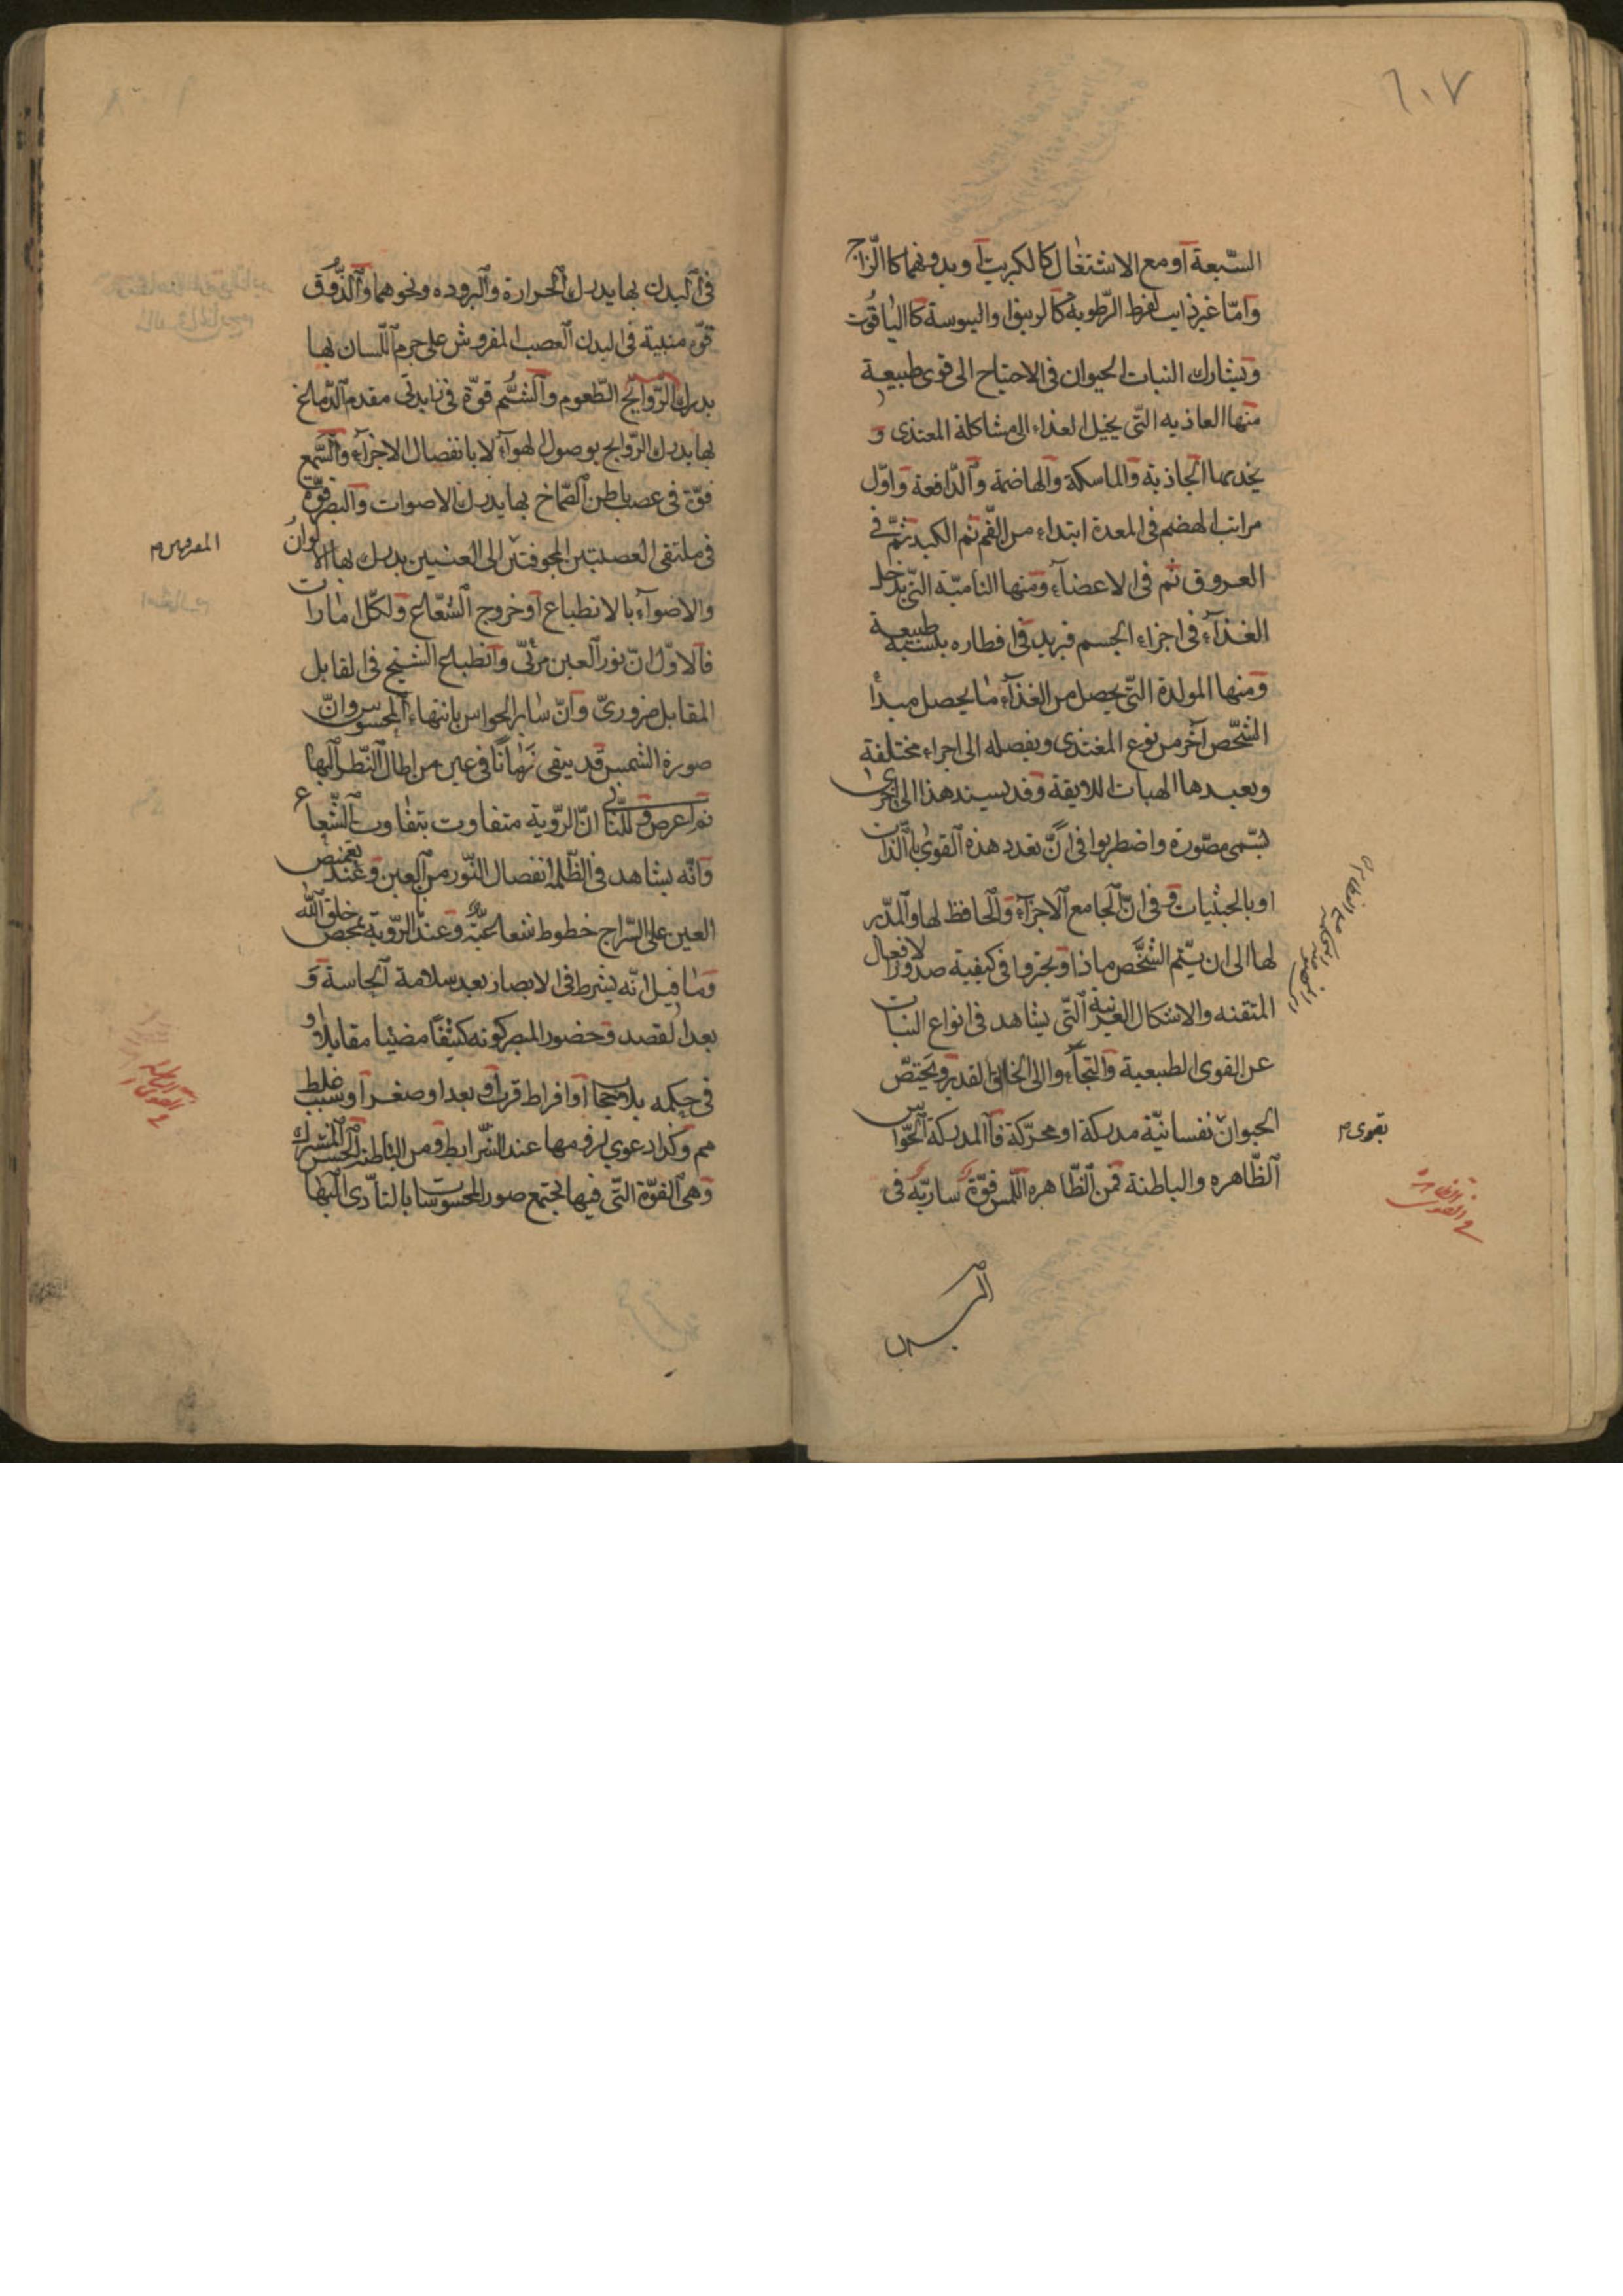 ١٠٧
السّبعة أو مع الاشتغال كالكبريت أو بدونهما كالزّاج
وامّا غير ذايب لفرط الرّطوبة كالزيبق او اليبوسة كالياقوت
ويشارك النبات الحيوان فى الاحتياج الى قوى طبيعية
منها الغاذيه التّى يحيل الغذاء الى مشاكلة المغتذى و
يخدمها الجاذبة والماسكة والهاضمة والدّافعة واوّل
مراتب الهضم فى المعدة ابتداء من الفّم ثم الكبد ثمّ فى
العروق ثم فى الاعضآء ومنها الناميّة التّى يدخل
الغذآء فى اجزاء الجسم فيزيد فى اقطاره بنسبة طبيعية
ومنها المولدة التّى يحصل من الغذآء ما يحصل مبدأ
الشّخص آخر من نوع المغتذى ويفصله الى اجزاء مختلفة
ويعيدها الهيات اللايقة وقد يسند هذا الى اخرى
يسّمى مصّورة واضطربوا فى انّ تعدد هذه القوى بالّذات
او بالحيثيات و فى انّ الجامع الاجزآء والحافظ لها والمدّبر
لها الى ان يتّم الشّخص ماذا وتحيّروا فى كيفية صدور الافعال
المتقنه والاشكال الغريبة التّى يشاهد فى انواع النبات
عن القوى الطبيعية والتجأوا الى الخالق القدير ويختصّ
الحيوان نفسانيّة مدركة او محرّكة فالمدركة الحوّاس
بقوى م
الظّاهره والباطنة فمن الظّاهره اللّمس قوّة ساريّة فى
البدن
فى البدن بها يدرك الحرارة والبروده ونحوهما والذّوق
قوّه منبية فى البدن العصب المفروش على جرم اللّسان بها
يدرك الرّوايح الطّعوم والشّم قوّة فى زايدتى مقدم الدّماغ
بها يدرك الرّوايح بوصول الهوآء لا بانفصال الاجزآء والسّمع
قوّة فى عصب باطن الصّماخ بها يدرك الاصوات والبصر قوّة
فى ملتقى العصبتين المجوفتين الى العينين يدرك بها الالوان
والاضوآء بالانطباع أو خروج الشّعاع ولكلّ امارات
فالاوّل انّ نور العين مرئىّ وانطباع الشبح فى القابل
المقابل ضرورىّ وانّ ساير الحواس بانتهاء المحسوس وانّ
صورة الشمس قد يبقى زمانًا فى عين من اطال النّظر اليها
ثم اعرض و للثّانى انّ الرّوية متفاوت بتفاوت الشّعاع
وانّه يشاهد فى الظّلمة انفصال النّور من العين وعند تغميض
العين على السّراج خطوط شعاعيّة وعندنا الرّوية بمحض خلق الله
وما قيل انّه يشرط فى الابصار بعد سلامة الحاسة و
بعد القصد وحضور المبصر كونه كثيفًا مضيئا مقابلا او
فى حكمه بلا حجاب أو افراط قرب او بعد او صغر أو سبب غلط
مم وكذا دعوى لزومها عند الشّرايط ومن الباطنة الحسّ المشترك
وهى القوّة التّى فيها تجتمع صور المحسوسات بالتأدّى اليها